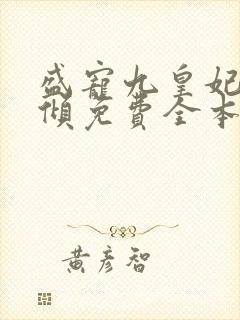 盛寵九皇妃
傾免費全本
黃彥智